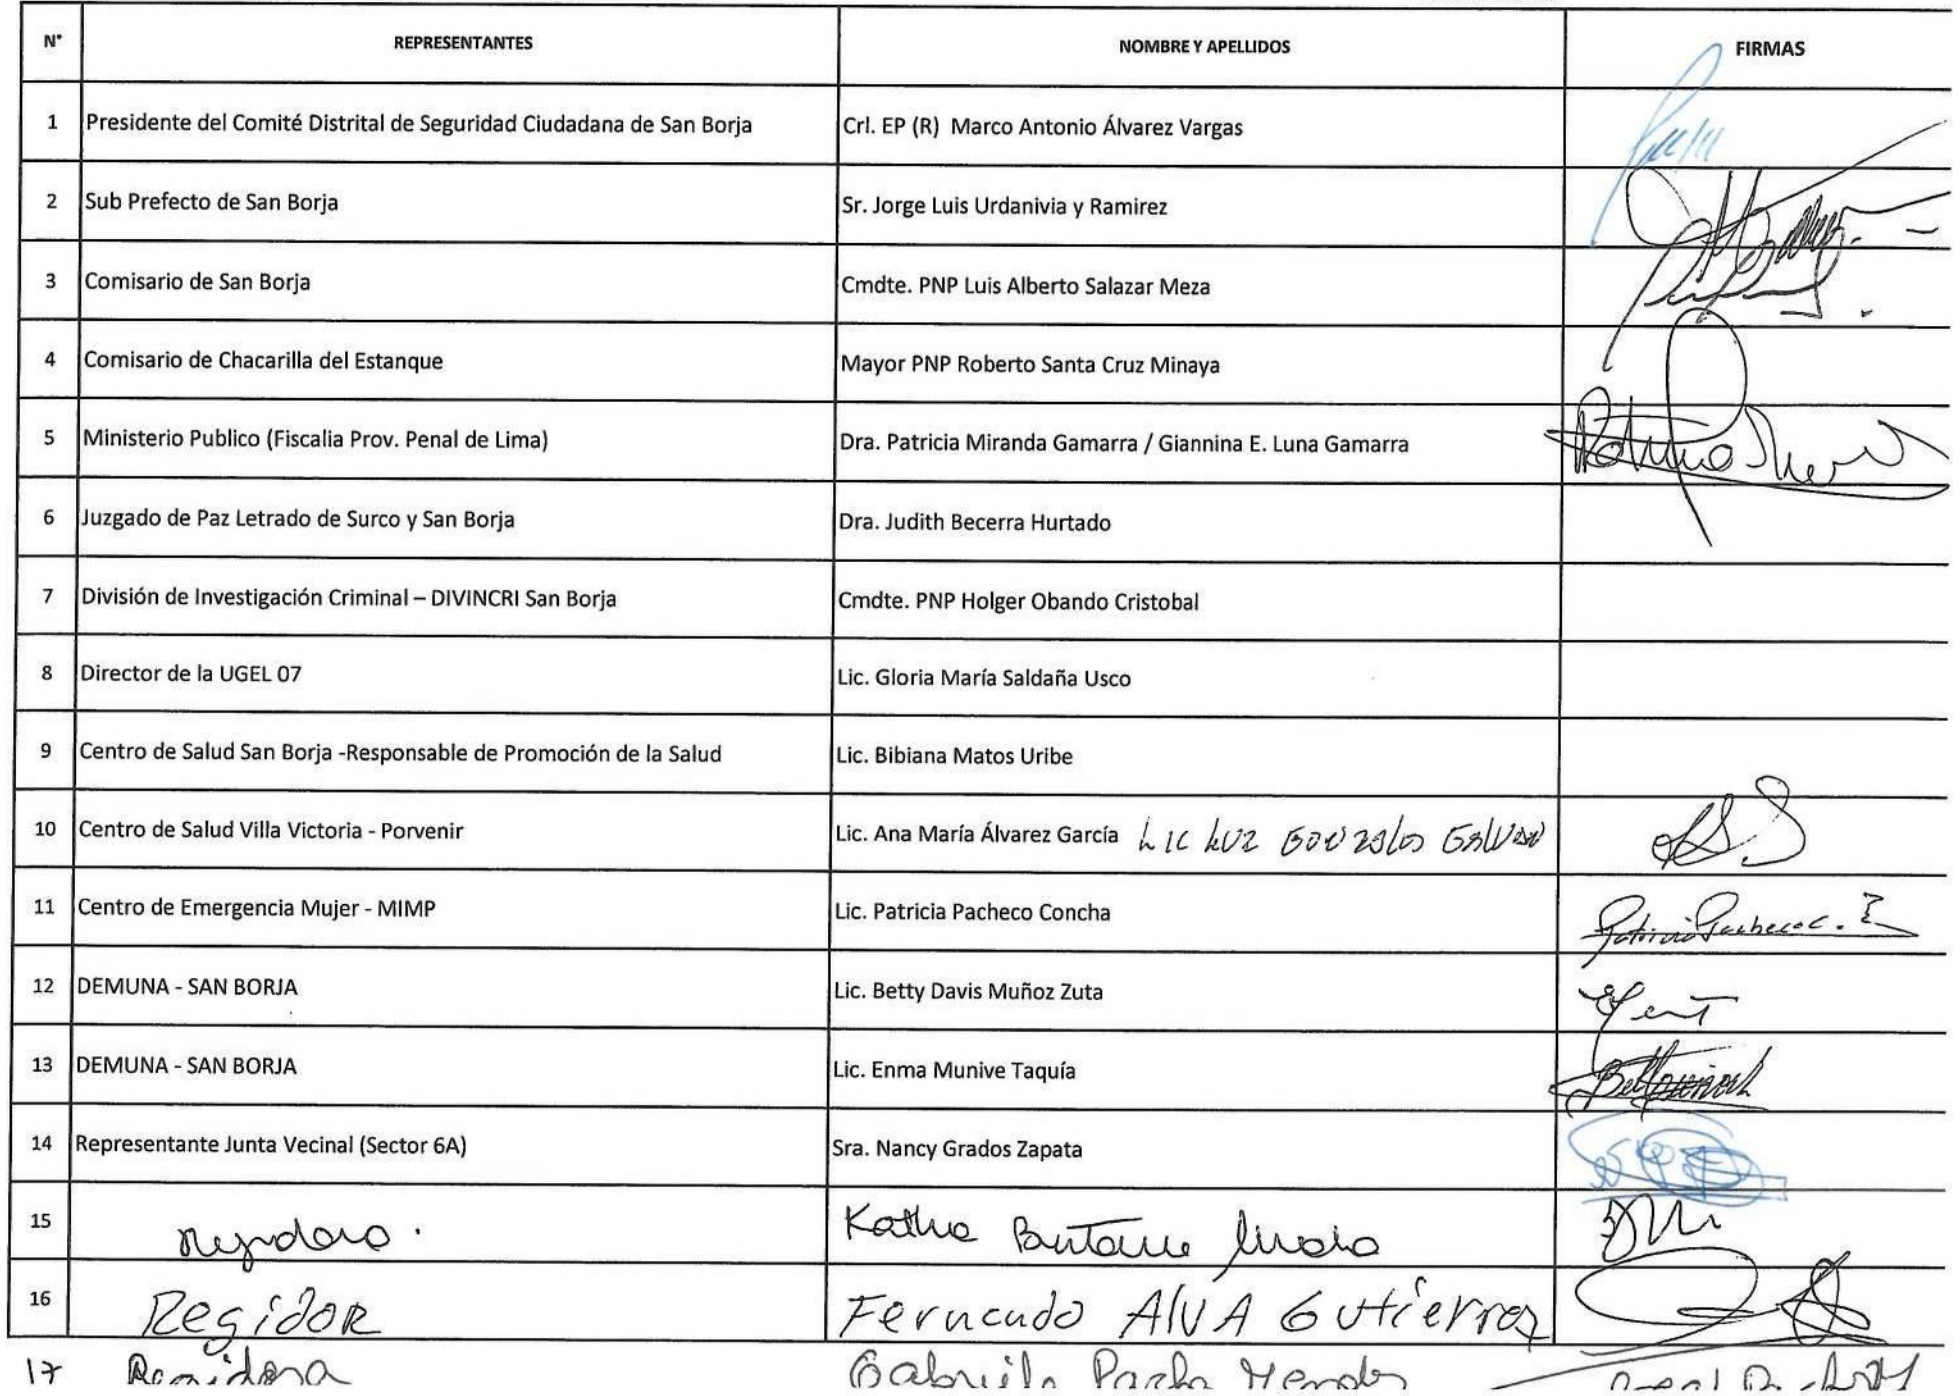 N° REPRESENTANTES NOMBRE Y APELLIDOS FIRMAS
1 Presidente del Comité Distrital de Seguridad Ciudadana de San Borja Crl. EP (R) Marco Antonio Álvarez Vargas
2 Sub Prefecto de San Borja Sr. Jorge Luis Urdanivia y Ramirez
3 Comisario de San Borja Cmdte. PNP Luis Alberto Salazar Meza
4 Comisario de Chacarilla del Estanque Mayor PNP Roberto Santa Cruz Minaya
5 Ministerio Publico (Fiscalia Prov. Penal de Lima) Dra. Patricia Miranda Gamarra / Giannina E. Luna Gamarra
6 Juzgado de Paz Letrado de Surco y San Borja Dra. Judith Becerra Hurtado
7 División de Investigación Criminal – DIVINCRI San Borja Cmdte. PNP Holger Obando Cristobal
8 Director de la UGEL 07 Lic. Gloria María Saldaña Usco
9 Centro de Salud San Borja -Responsable de Promoción de la Salud Lic. Bibiana Matos Uribe
10 Centro de Salud Villa Victoria - Porvenir Lic. Ana María Álvarez García LIC LUZ
11 Centro de Emergencia Mujer - MIMP Lic. Patricia Pacheco Concha Patricia Pacheco C.
12 DEMUNA - SAN BORJA Lic. Betty Davis Muñoz Zuta
13 DEMUNA - SAN BORJA Lic. Enma Munive Taquía
14 Representante Junta Vecinal (Sector 6A) Sra. Nancy Grados Zapata
15 Regidora.
16 Regidor Fernando AlVA Gutierrez
17 Regidora Gabriela